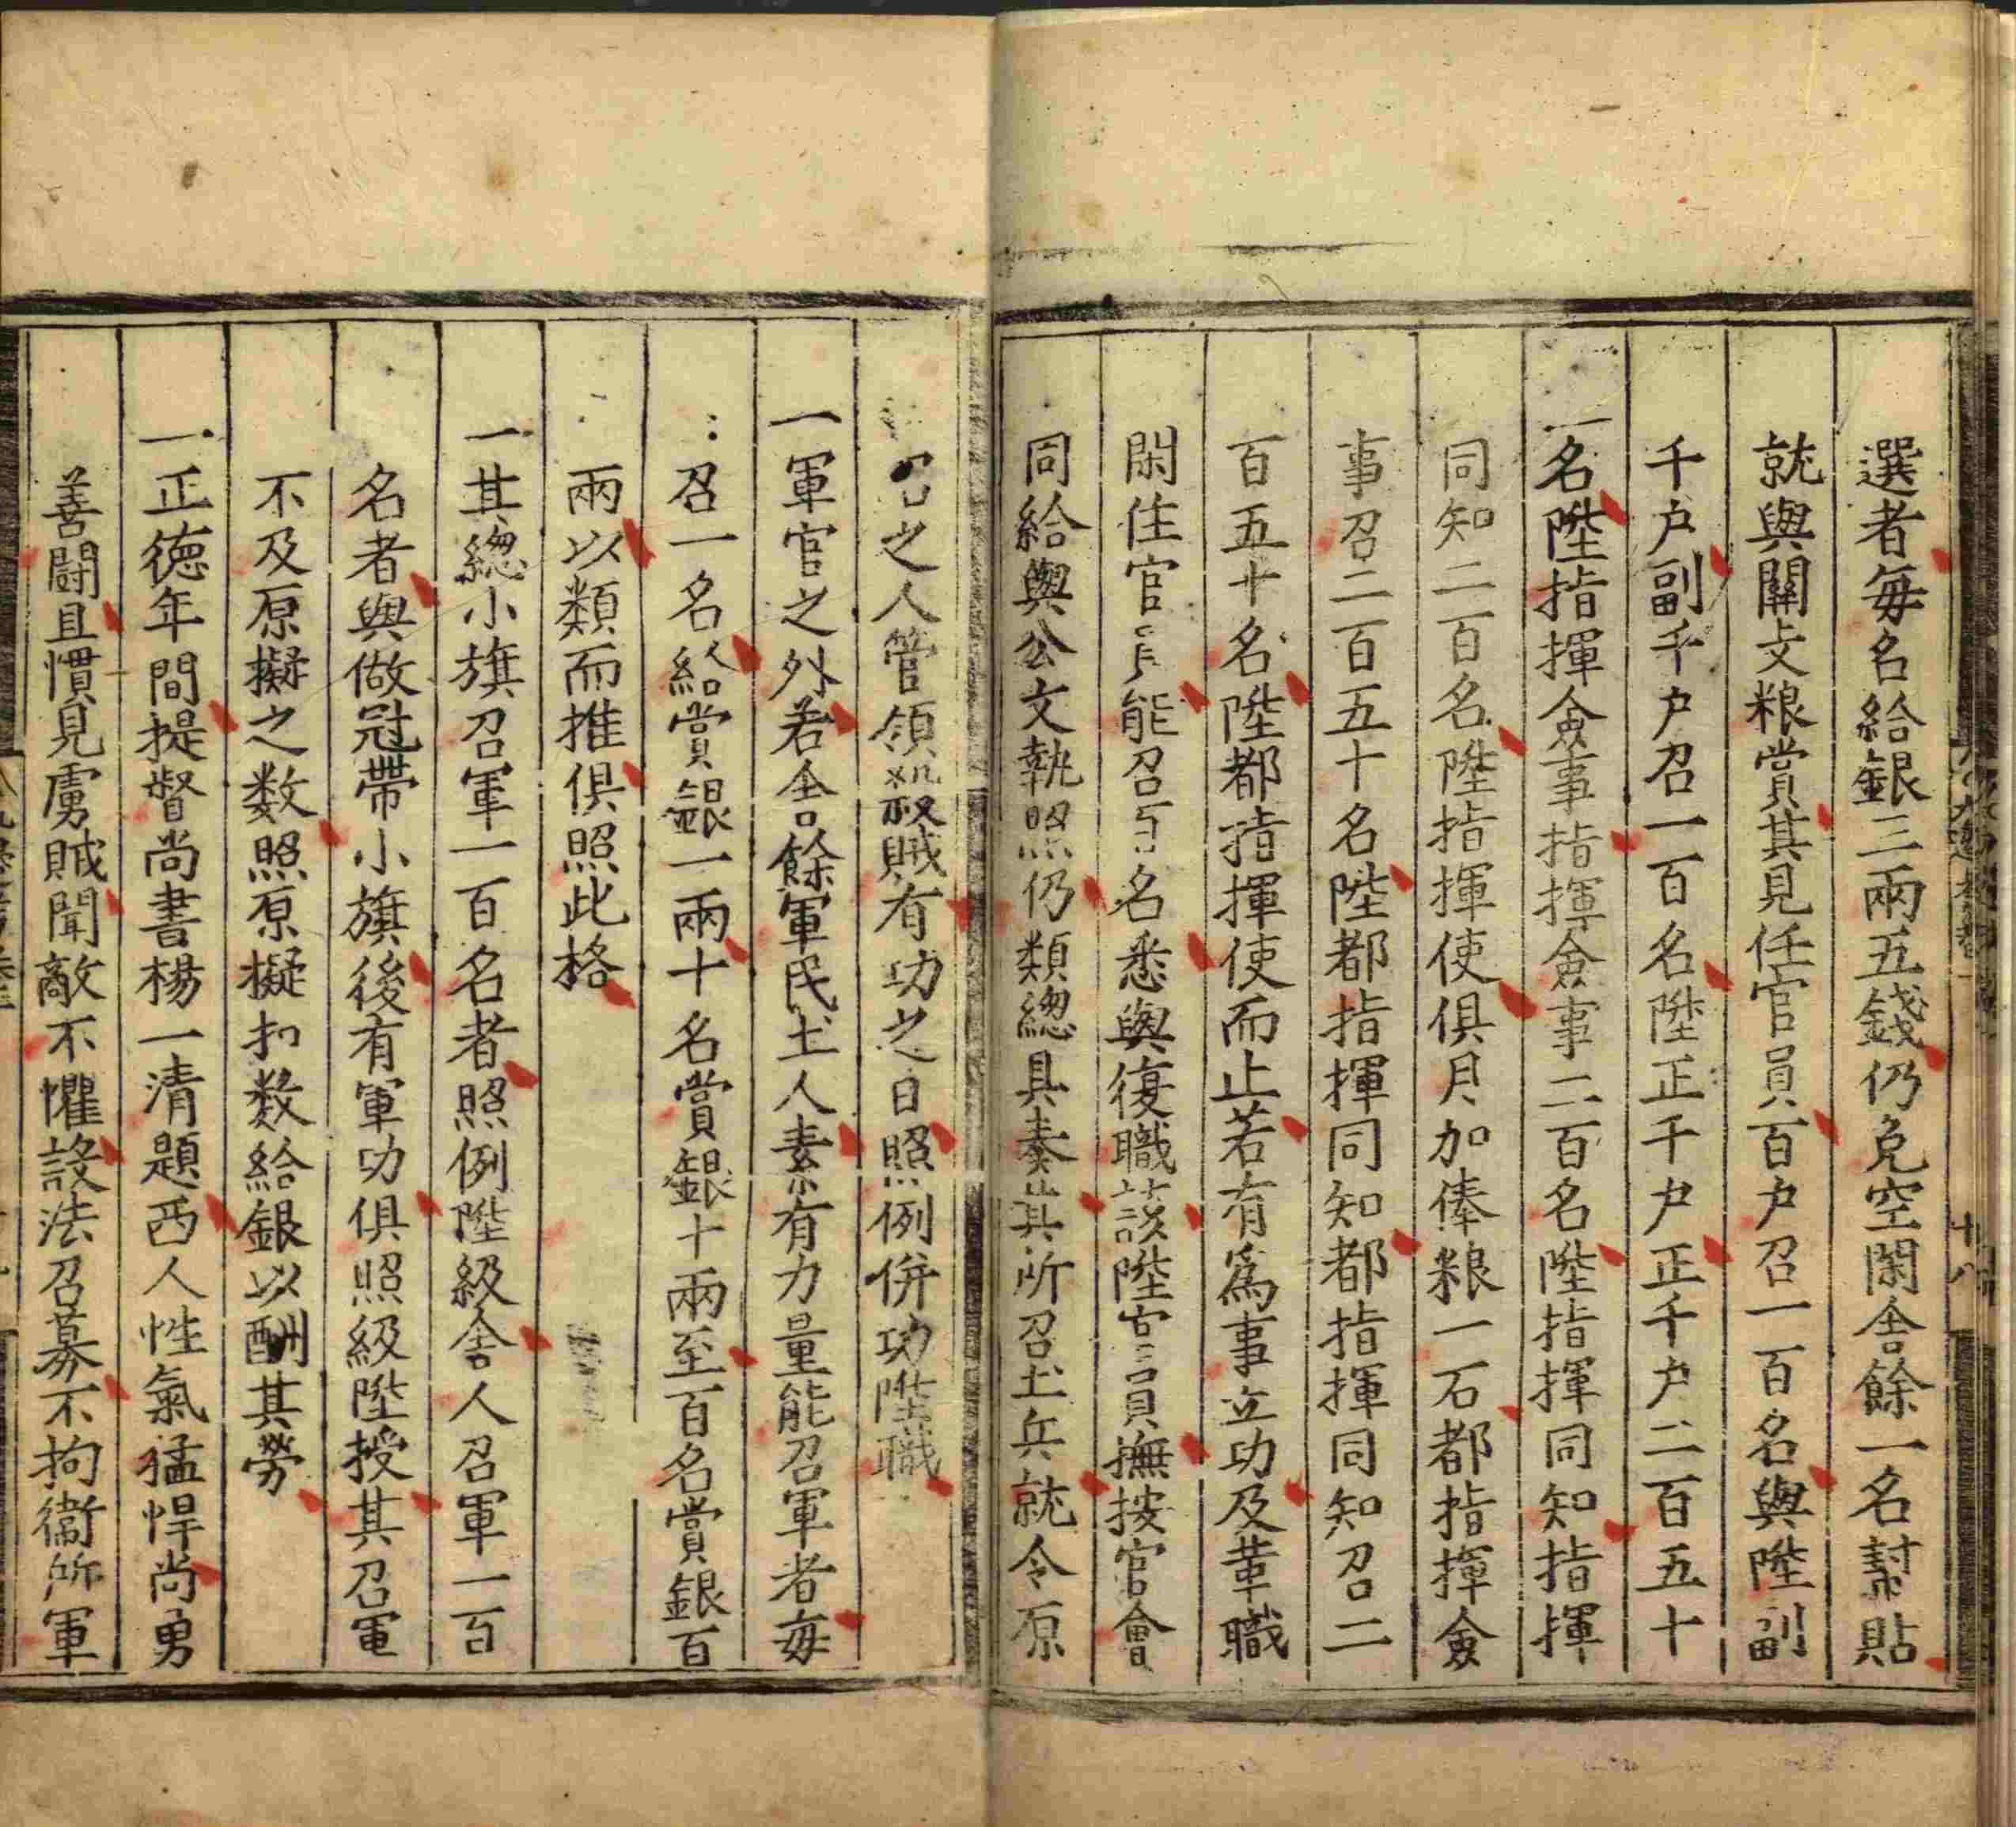 選者每名給銀三兩五錢仍免空閑舎餘一名幇貼
就與關支粮賞其見任官員百户召一百名與陞副
千户副千户召一百名陞正千户正千户二百五十
一名陞指揮僉事指揮僉事二百名陞指揮同知指揮
同知二百名陞指揮使俱月加俸粮一石都指揮僉
事召二百五十名陞都指揮同知都指揮同知召二
百五十名陞都指揮使而止若有為事立功及革職
閑住官員能召百名悉與復職該陞官員撫按官會
同給與公文執照仍類總具奏其所召土兵就令原
召之人管領殺賊有功之日照例併功陞職
一軍官之外若舎餘軍民土人素有力量能召軍者每
召一名給賞銀一兩十名賞銀十兩至百名賞銀百
兩以類而推俱照此格
一其總小旗召軍一百名者照例陞級舎人召軍一百
名者與做冠帶小旗後有軍功俱照級陞授其召軍
不及原擬之数照原擬扣数給銀以酬其勞
一正德年間提督尚書楊一清題西人性氣猛悍尚勇
善闘且慣見虜賊聞敵不懼設法召募不拘衞所軍